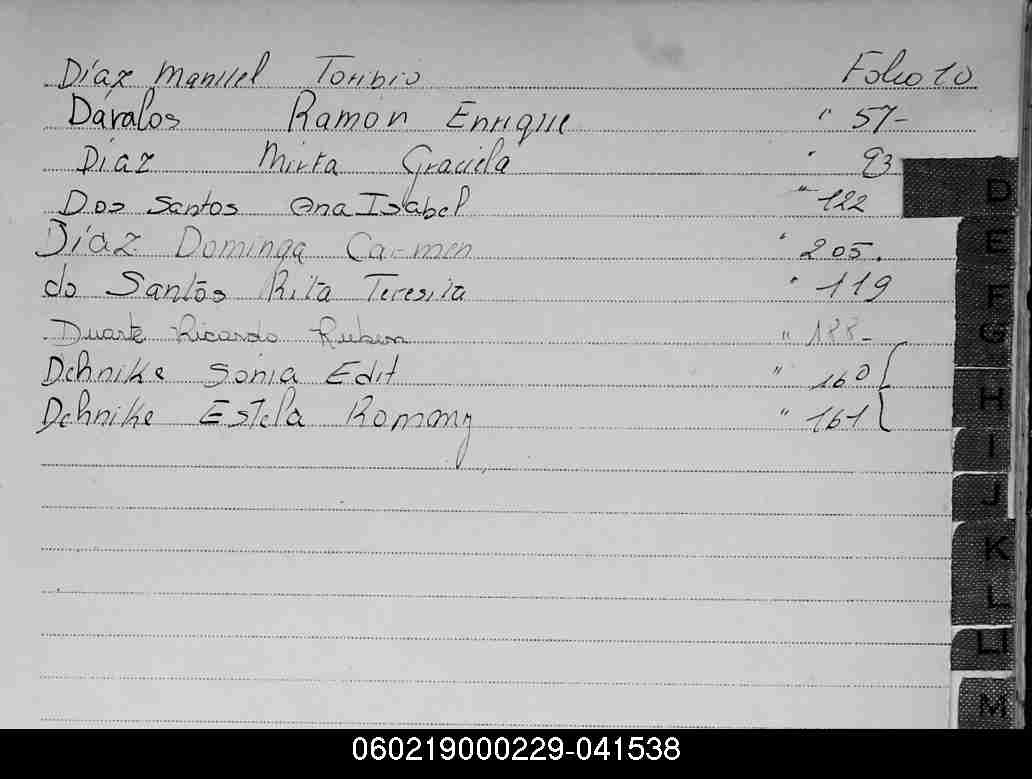 Díaz Manuel Toribio Folio 10
Dávalos Ramón Enrique " 57-
Díaz Mirta Graciela " 93
Dos Santos Ana Isabel " 122
Díaz Dominga Carmen " 205.
do Santos Rita Teresita " 119
Duarte Ricardo Ruben " 188-
Dehnike Sonia Edit " 160
Dehnike Estela Romany " 161
D
E
F
G
H
I
J
K
L
Ll
M
060219000229-041538